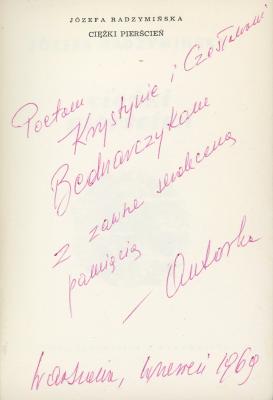 JÓZEFA RADZYMIŃSKA
CIĘŻKI PIERŚCIEŃ
Poetom
Krystynie i Czesławowi
Bednarczykom
z zawsze serdeczną
pamięcią
— Autorka
Warszawa, wrzesień 1969